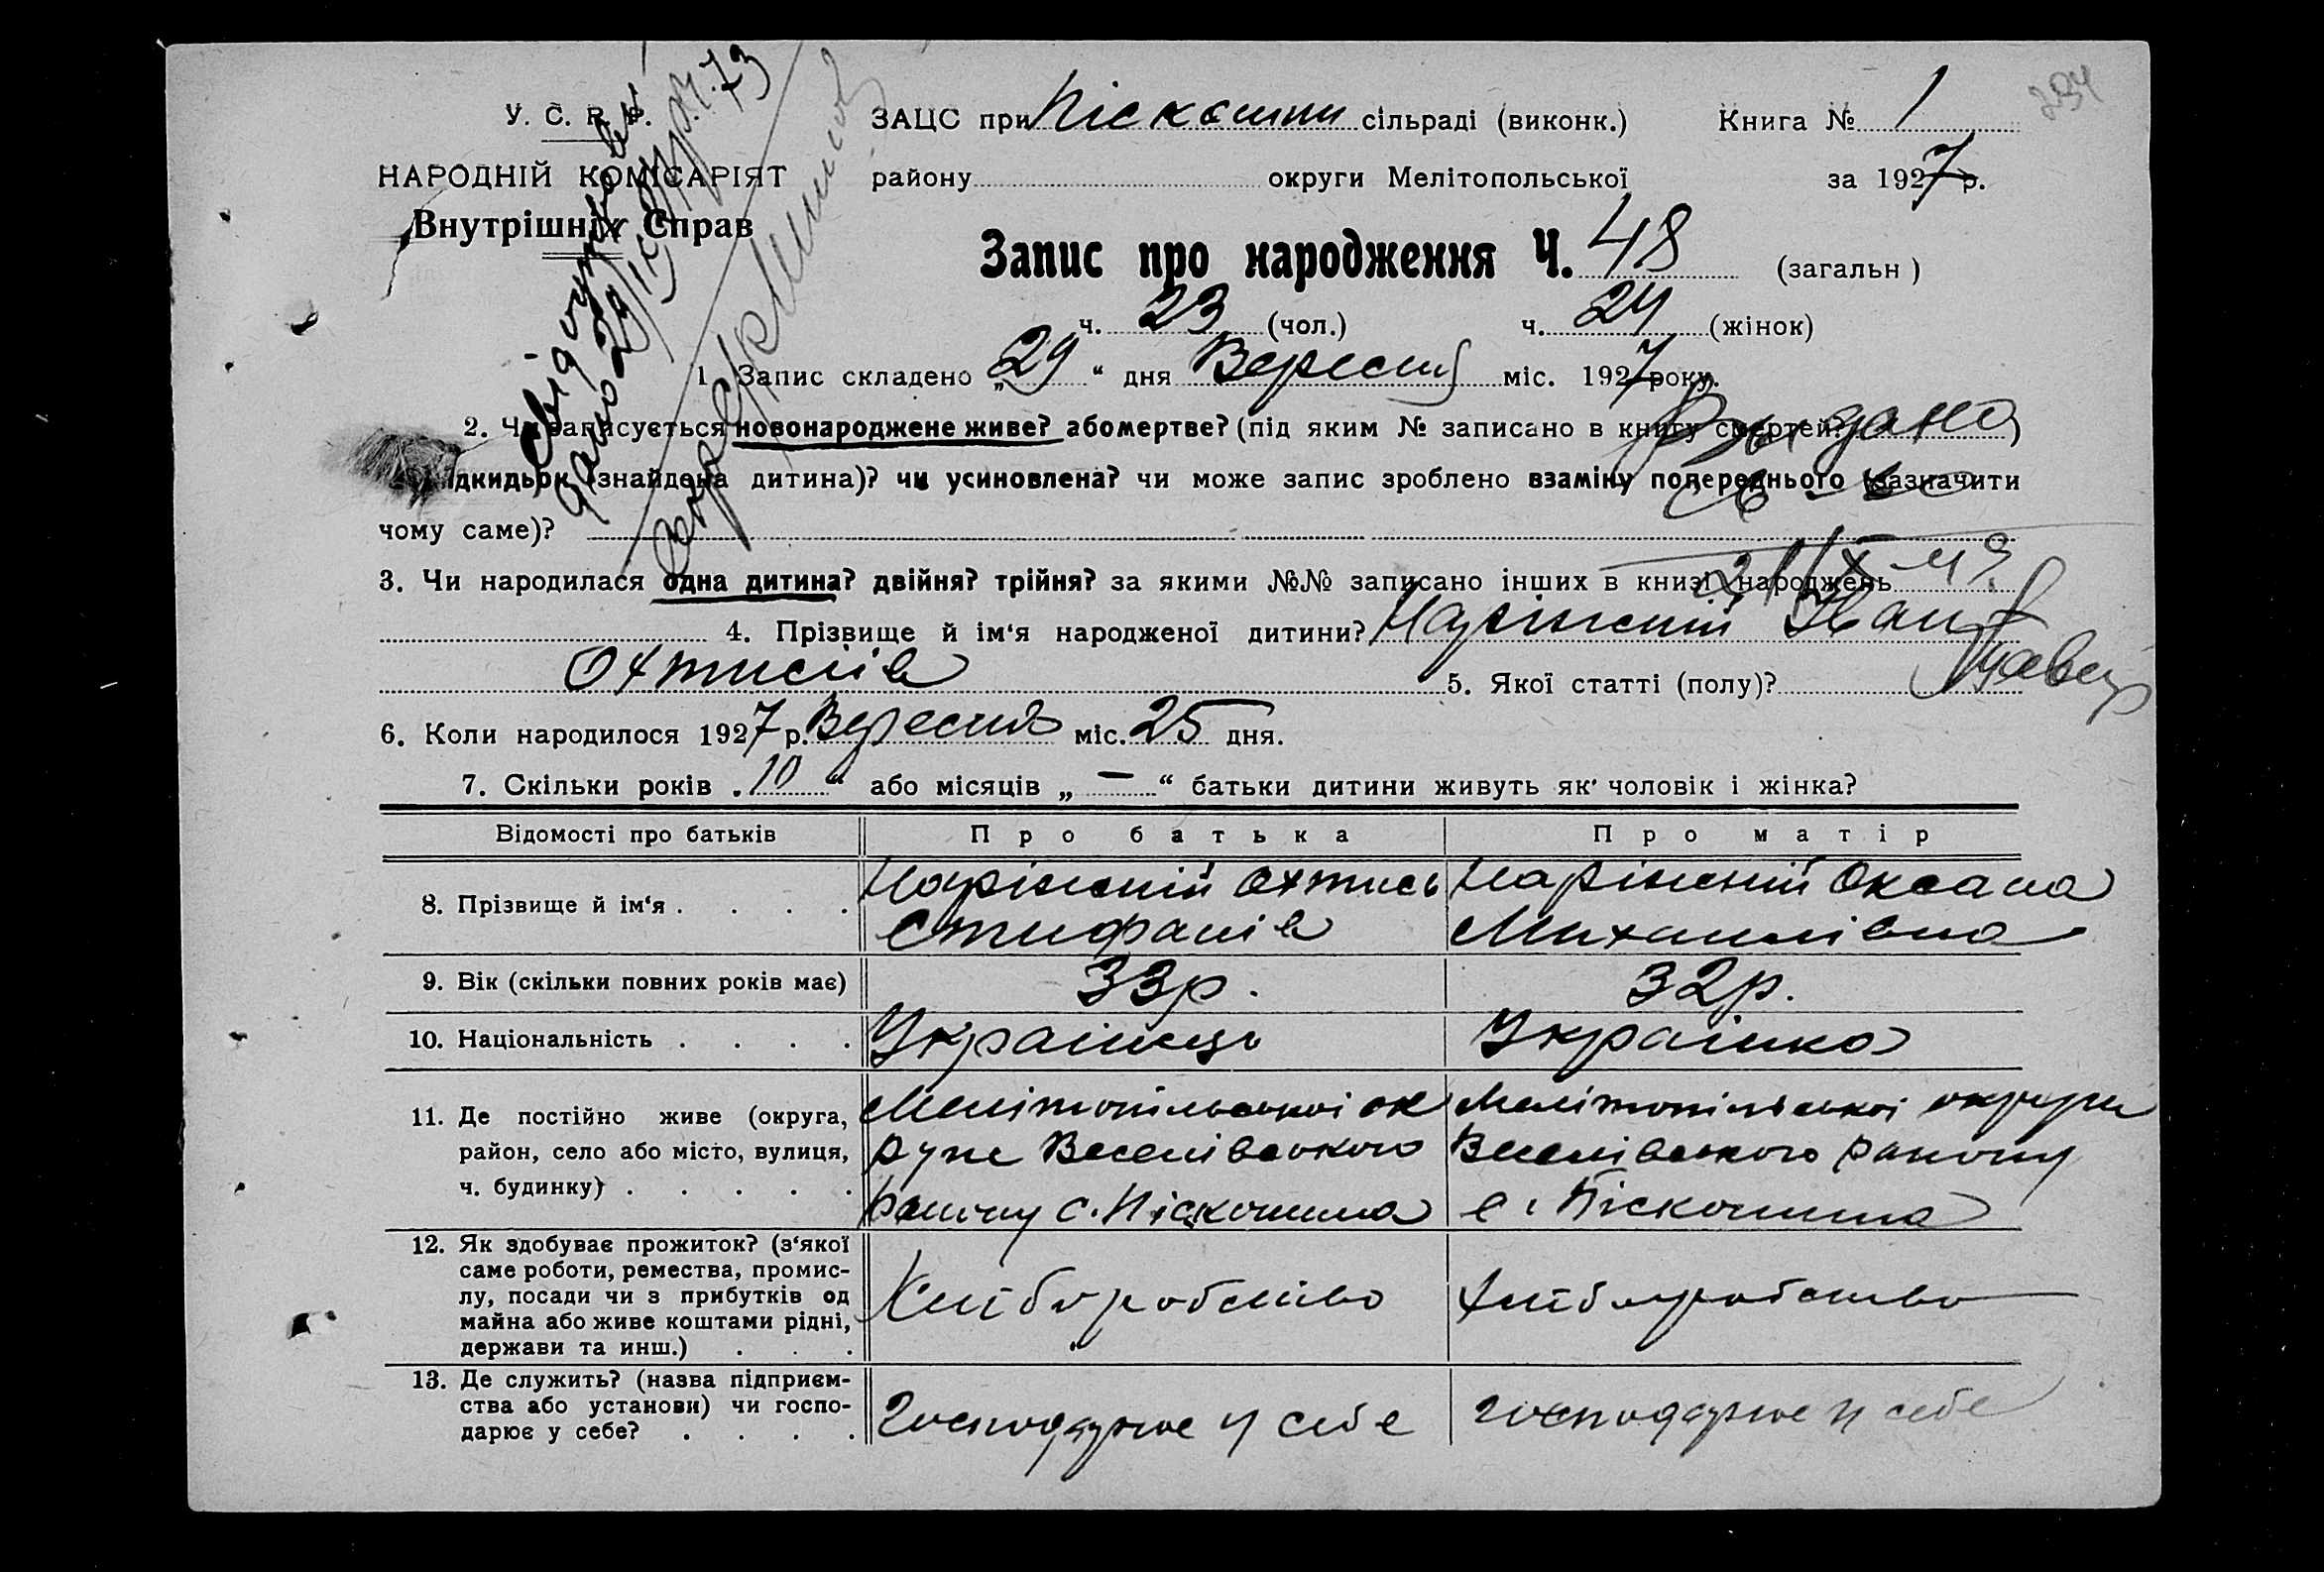 294
У. С. Р. Р. ЗАЦС при Піскошин сільраді (виконк.) Книга № 1
НАРОДНІЙ КОМІСАРІЯТ району округи Мелітопольської за 1927 р.
Внутрішніх Справ
Запис про народження Ч. 48 (загальн)
ч. 23 (чол.) ч. 24 (жінок)
1. Запис складено „29“ дня Вересня міс. 1927 року.
2. Чи записується новонароджене живе? або мертве? (під яким № записано в книгу смертей? )
підкидьок (знайдена дитина)? чи усиновлена? чи може запис зроблено взаміну попереднього (зазначити
чому саме)?
3. Чи народилася одна дитина? двійня? трійня? за якими №№ записано інших в книзі народжень
4. Прізвище й ім‘я народженої дитини? Іван
Охтисів 5. Якої статті (полу)?
6. Коли народилося 1927 р. Вересня міс. 25 дня.
7. Скільки років „10“ або місяців „—“ батьки дитини живуть як чоловік і жінка?
Відомості про батьків Про батька Про матір
8. Прізвище й ім‘я . . . . Охтись Оксана
Стифанів Михайлівна
9. Вік (скільки повних років має) 33 р. 32 р.
10. Національність . . . . Українець Українка
11. Де постійно живе (округа, Мелітопільської ок Мелітопільської округи
район, село або місто, вулиця, руги Веселівського Веселівського району
ч. будинку) . . . . . району с. Піскошина с. Піскошина
12. Як здобуває прожиток? (з‘якої
саме роботи, ремества, промис-
лу, посади чи з прибутків од Хліборобство Хліборобство
майна або живе коштами рідні,
держави та инш.) . . .
13. Де служить? (назва підприєм-
ства або установи) чи госпо- господарює у себе господарює у себе
дарює у себе? . . . .
Свідоцтво
дано 29/IX
Видано